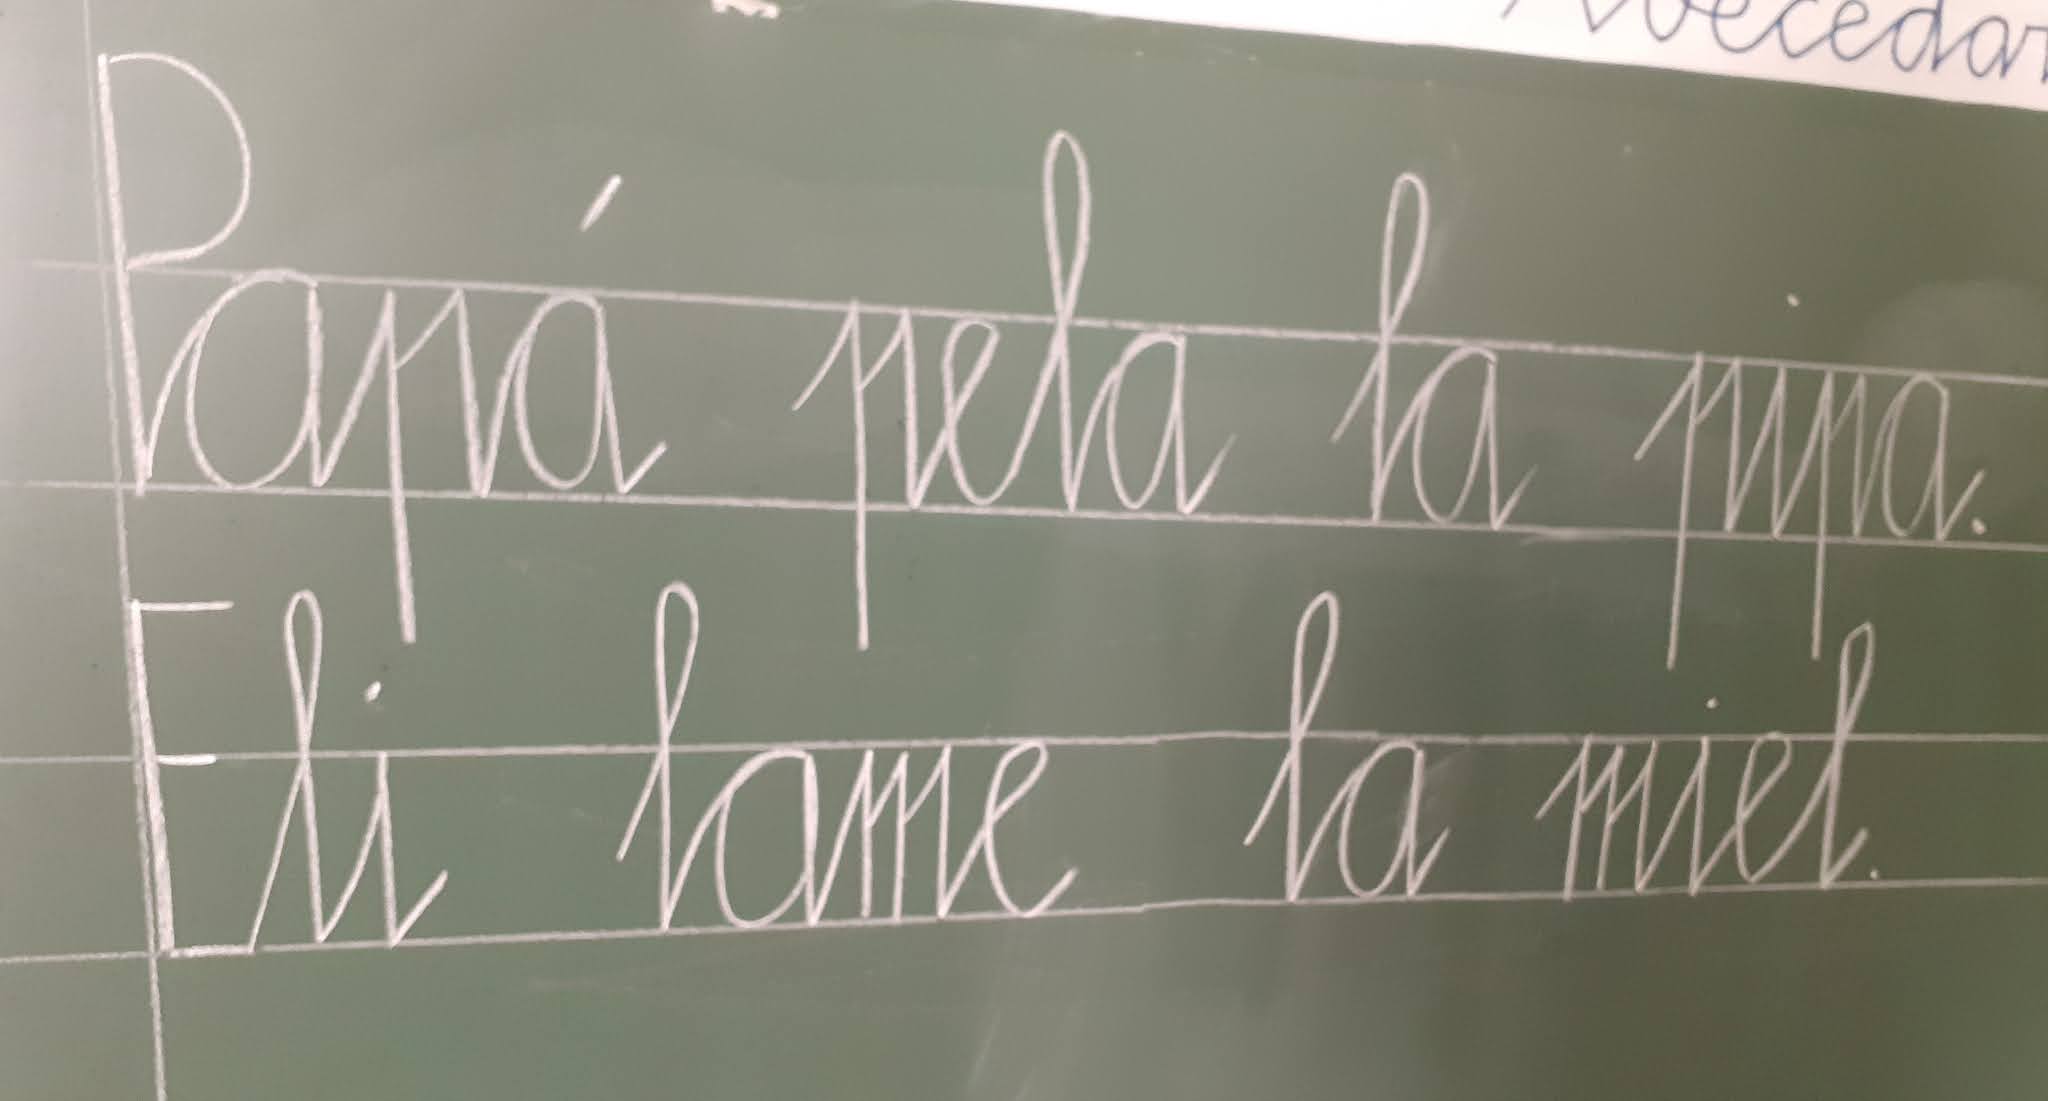 Abecedar
Papá pela la pipa.
Eli lame la miel.